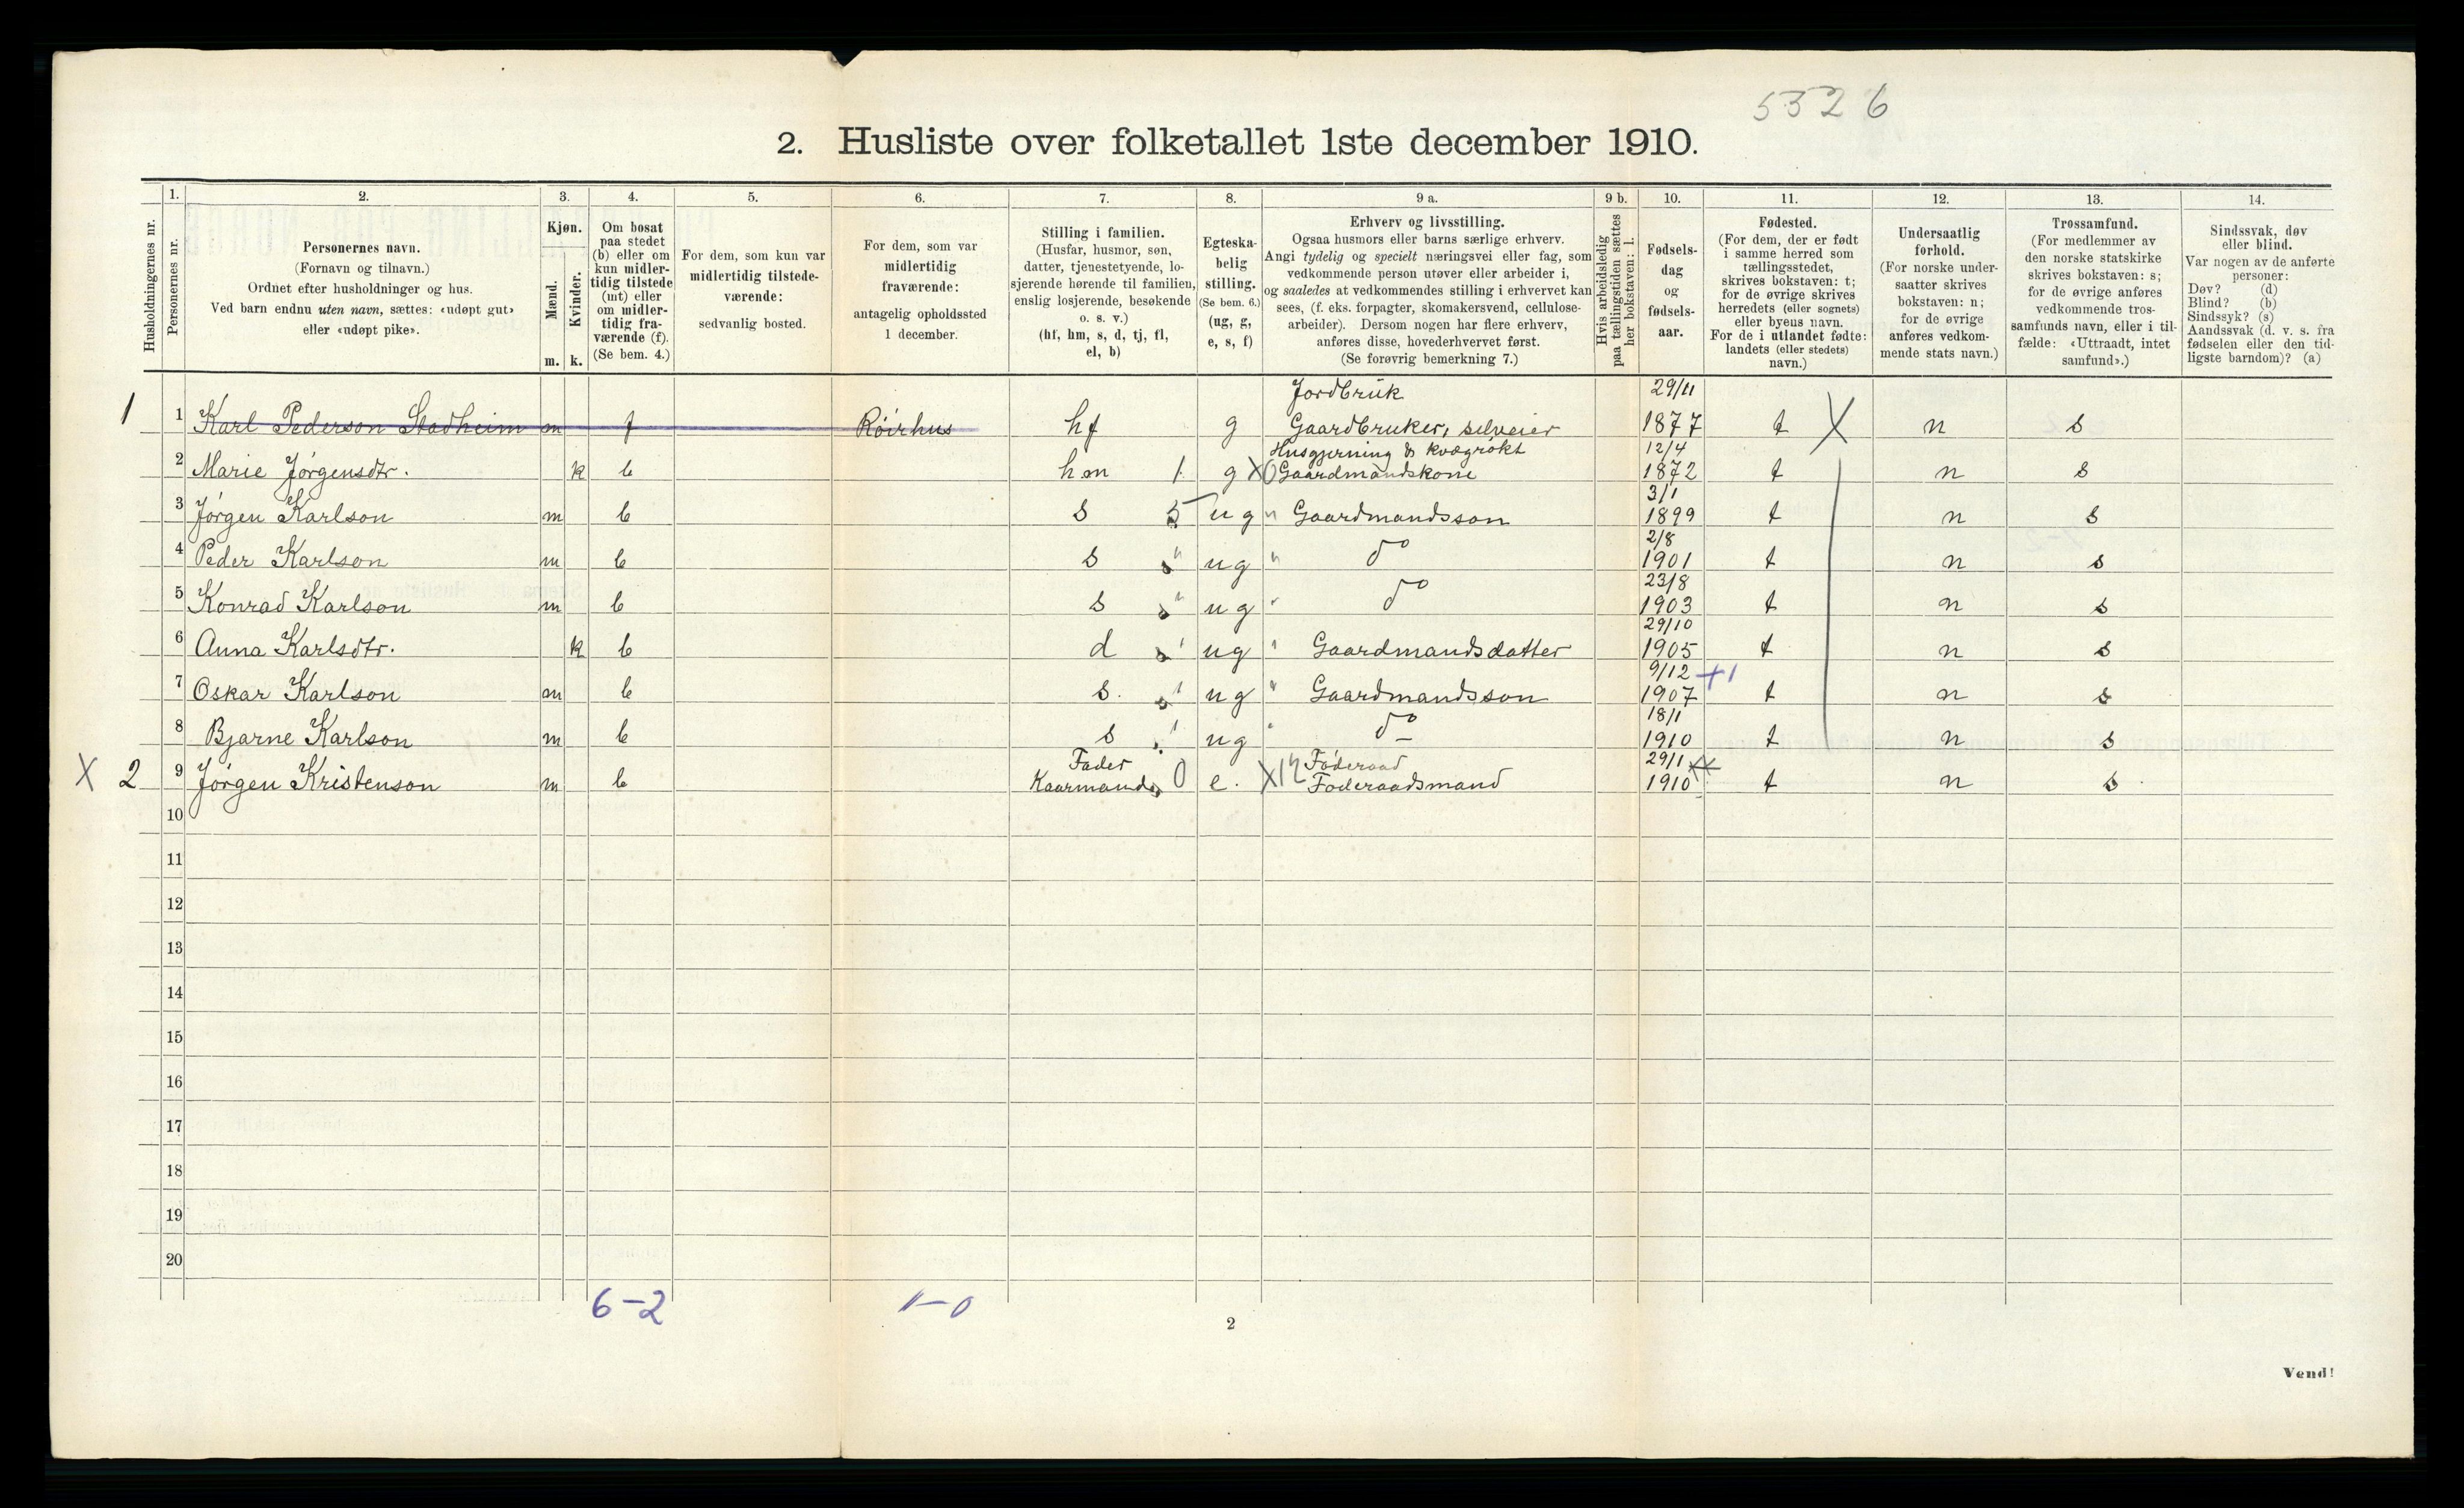 5326
2. Husliste over folketallet 1ste december 1910.
Husholdningernes nr.
1.
Personernes nr.
2.
Personernes navn.
(Fornavn og tilnavn.)
Ordnet efter husholdninger og hus.
Ved barn endnu uten navn, sættes: «udøpt gut»
eller «udøpt pike».
3.
Kjøn.
Mænd.
Kvinder.
m. k.
4.
Om bosat
paa stedet
(b) eller om
kun midler-
tidig tilstede
(mt) eller
om midler-
tidig fra-
værende (f).
(Se bem. 4.)
5.
For dem, som kun var
midlertidig tilstede-
værende:
sedvanlig bosted.
6.
For dem, som var
midlertidig
fraværende:
antagelig opholdssted
1 december.
7.
Stilling i familien.
(Husfar, husmor, søn,
datter, tjenestetyende, lo-
sjerende hørende til familien,
enslig losjerende, besøkende
o. s. v.)
(hf, hm, s, d, tj, fl,
el, b)
8.
Egteska-
belig
stilling.
(Se bem. 6.)
(ug, g,
e, s, f)
9 a.
Erhverv og livsstilling.
Ogsaa husmors eller barns særlige erhverv.
Angi tydelig og specielt næringsvei eller fag, som
vedkommende person utøver eller arbeider i,
og saaledes at vedkommendes stilling i erhvervet kan
sees, (f. eks. forpagter, skomakersvend, cellulose-
arbeider). Dersom nogen har flere erhverv,
anføres disse, hovederhvervet først.
(Se forøvrig bemerkning 7.)
9 b.
Hvis arbeidsledig
paa tællingstiden sættes
her bokstaven: l.
10.
Fødsels-
dag
og
fødsels-
aar.
11.
Fødested.
(For dem, der er født
i samme herred som
tællingsstedet,
skrives bokstaven: t;
for de øvrige skrives
herredets (eller sognets)
eller byens navn.
For de i utlandet fødte:
landets (eller stedets)
navn.)
12.
Undersaatlig
forhold.
(For norske under-
saatter skrives
bokstaven: n;
for de øvrige
anføres vedkom-
mende stats navn.)
13.
Trossamfund.
(For medlemmer av
den norske statskirke
skrives bokstaven: s;
for de øvrige anføres
vedkommende tros-
samfunds navn, eller i til-
fælde: «Uttraadt, intet
samfund».)
14.
Sindssvak, døv
eller blind.
Var nogen av de anførte
personer:
Døv? (d)
Blind? (b)
Sindssyk? (s)
Aandssvak (d. v. s. fra
fødselen eller den tid-
ligste barndom)? (a)
Jordbruk 29/11
1 1 Karl Pederson Stadheim m f Röirhus hf g Gaardbruker, selveier 1877 t X n s
Husgjerning & kvægrøkt 12/4
2 Marie Jörgensdtr. k b hm 1 g X0 Gaardmandskone 1872 t n s
3/1
3 Jörgen Karlson m b s 5 ug " Gaardmandsson 1899 t n s
2/8
4 Peder Karlson m b s " ug " do 1901 t n s
23/8
5 Konrad Karlson m b s " ug " do 1903 t n s
29/10
6 Anna Karlsdtr. k b d " ug " Gaardmandsdatter 1905 t n s
9/12 +1
7 Oskar Karlson m b s. " ug " Gaardmandsson 1907 t n s
18/1
8 Bjarne Karlson m b s " ug " do 1910 t n s
Fader Föderaad 29/1
X 2 9 Jörgen Kristenson m b Kaarmand 0 e. X12 Foderaadsmand 1910 t n s
10
11
12
13
14
15
16
17
18
19
20
6-2 1-0
2
Vend!